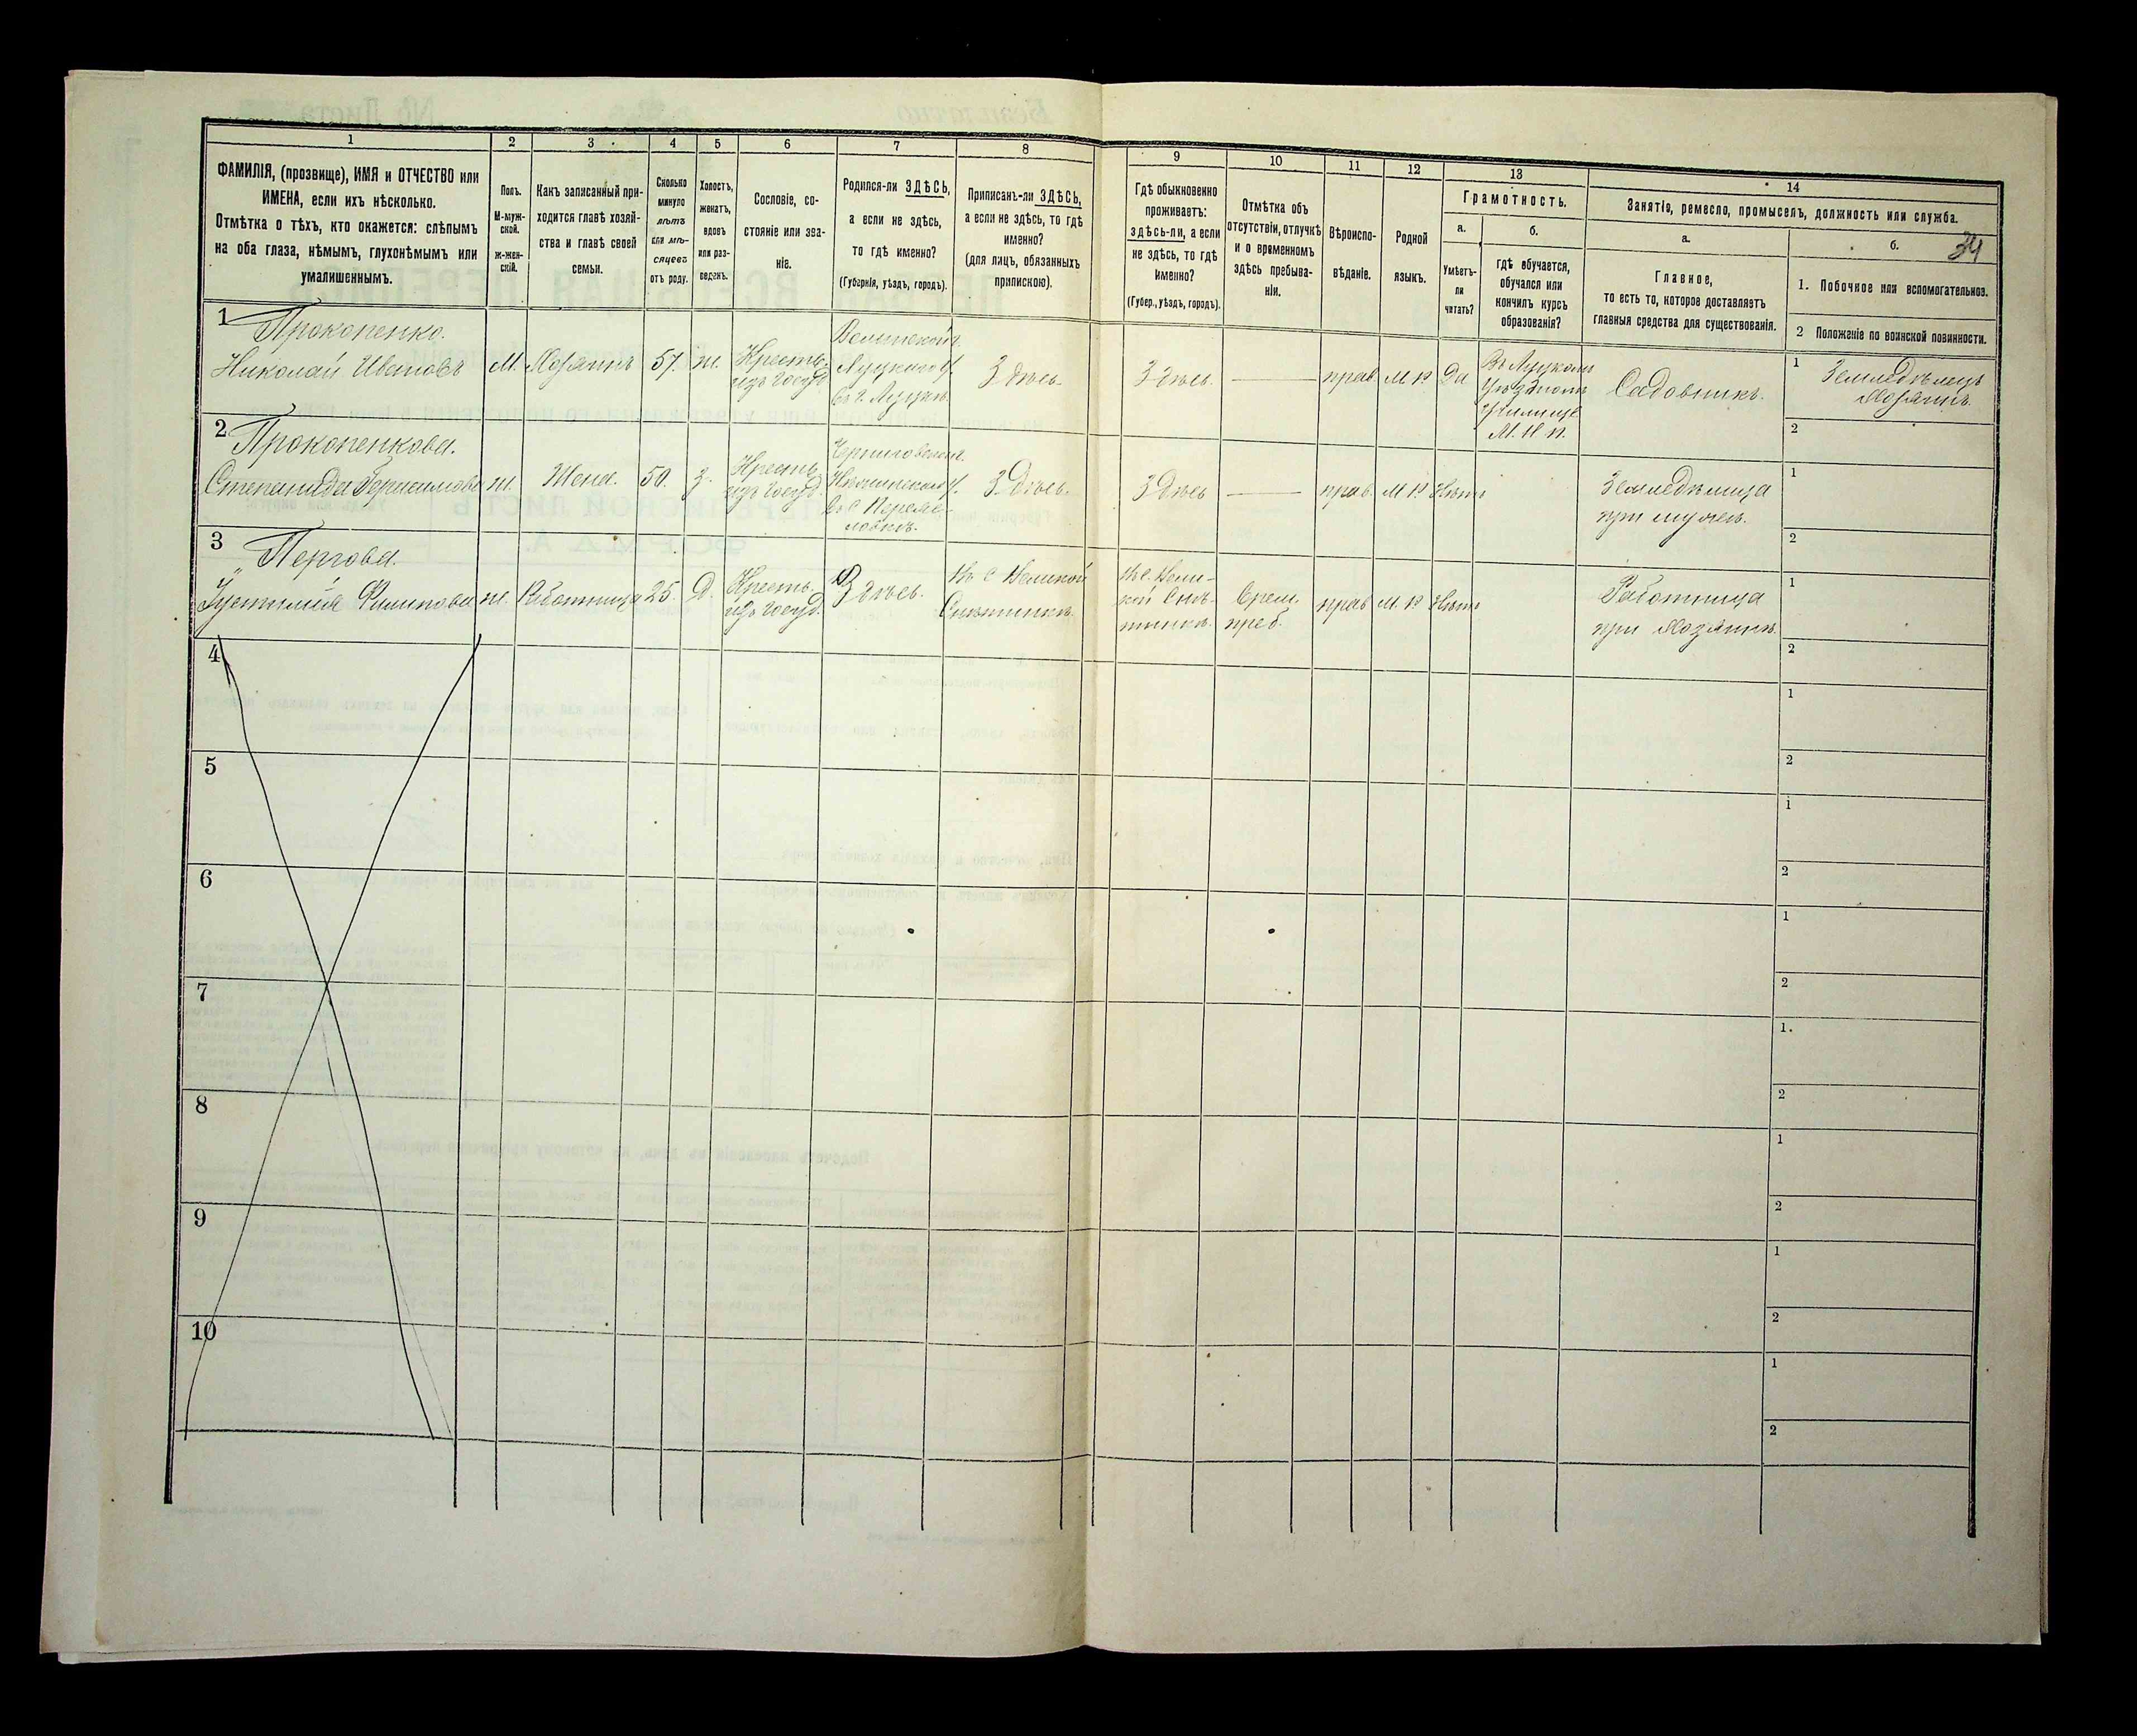 1 2 3 4 5 6 7 8 9 10 11 12 13 14
ФАМИЛІЯ, (прозвище), ИМЯ и ОТЧЕСТВО или
ИМЕНА, если ихъ нѣсколько.
Отмѣтка о тѣхъ, кто окажется: слѣпымъ
на оба глаза, нѣмымъ, глухонѣмымъ или
умалишеннымъ.
Полъ.
М-муж-
ской.
ж-жен-
скій.
Какъ записанный при-
ходится главѣ хозяй-
ства и главѣ своей
семьи.
Сколько
минуло
лѣтъ
или мѣ-
сяцевъ
отъ роду.
Холостъ,
женатъ,
вдовъ
или раз-
веденъ.
Сословіе, со-
стояніе или зва-
ніе.
Родился-ли ЗДѢСЬ,
а если не здѣсь,
то гдѣ именно?
(Губернія, уѣздъ, городъ).
Приписанъ-ли ЗДѢСЬ,
а если не здѣсь, то гдѣ
именно?
(для лицъ, обязанныхъ
припискою).
Гдѣ обыкновенно
проживаетъ:
здѣсь-ли, а если
не здѣсь, то гдѣ
именно?
(Губер., уѣздъ, городъ).
Отмѣтка объ
отсутствіи, отлучкѣ
и о временномъ
здѣсь пребыва-
ніи.
Вѣроиспо-
вѣданіе.
Родной
языкъ.
Грамотность.
а.
Умѣетъ-
ли
читать?
б.
гдѣ обучается,
обучался или
кончилъ курсъ
образованія?
Занятіе, ремесло, промыселъ, должность или служба.
а.
Главное,
то есть то, которое доставляетъ
главныя средства для существованія.
б.
34
1. Побочное или вспомогательное.
2 Положеніе по воинской повинности.
1
Прокопенко.
Николай Ивановъ
М.
Хозяинъ
57.
ж.
Крестьъ.
изъ госуд.
Волынской г.
Луцкаго у.
въ г. Луцкѣ.
Здѣсь.
Здѣсь.
прав.
М Р
Да
Въ Луцкомъ
Уѣздномъ
Училище
М. Н. П.
Садовникъ.
1
Земледѣлецъ
Хозяинъ.
2
2
Прокопенкова.
Степанида Герасимова
ж.
Жена.
50.
З.
Крестьъ.
изъ госуд.
Черниговской г.
Нѣжинскаго у.
Здѣсь.
Здѣсь
прав.
М Р
Нѣтъ
Земледѣлица
при мужѣ.
1
2
3
Пергова.
Устимія Филипова
ж.
Работница
25.
Д.
Крестьъ.
изъ госуд.
Здѣсь.
Въ с Великой
Снѣтинкѣ.
Въ с. Вели-
кой Снѣ-
тинкѣ.
Врем.
преб.
прав
М. Р
Нѣтъ
Работница
при Хозяинѣ.
1
2
4
1
2
5
1
2
6
1
2
7
1.
2
8
1
2
9
1
2
10
1
2